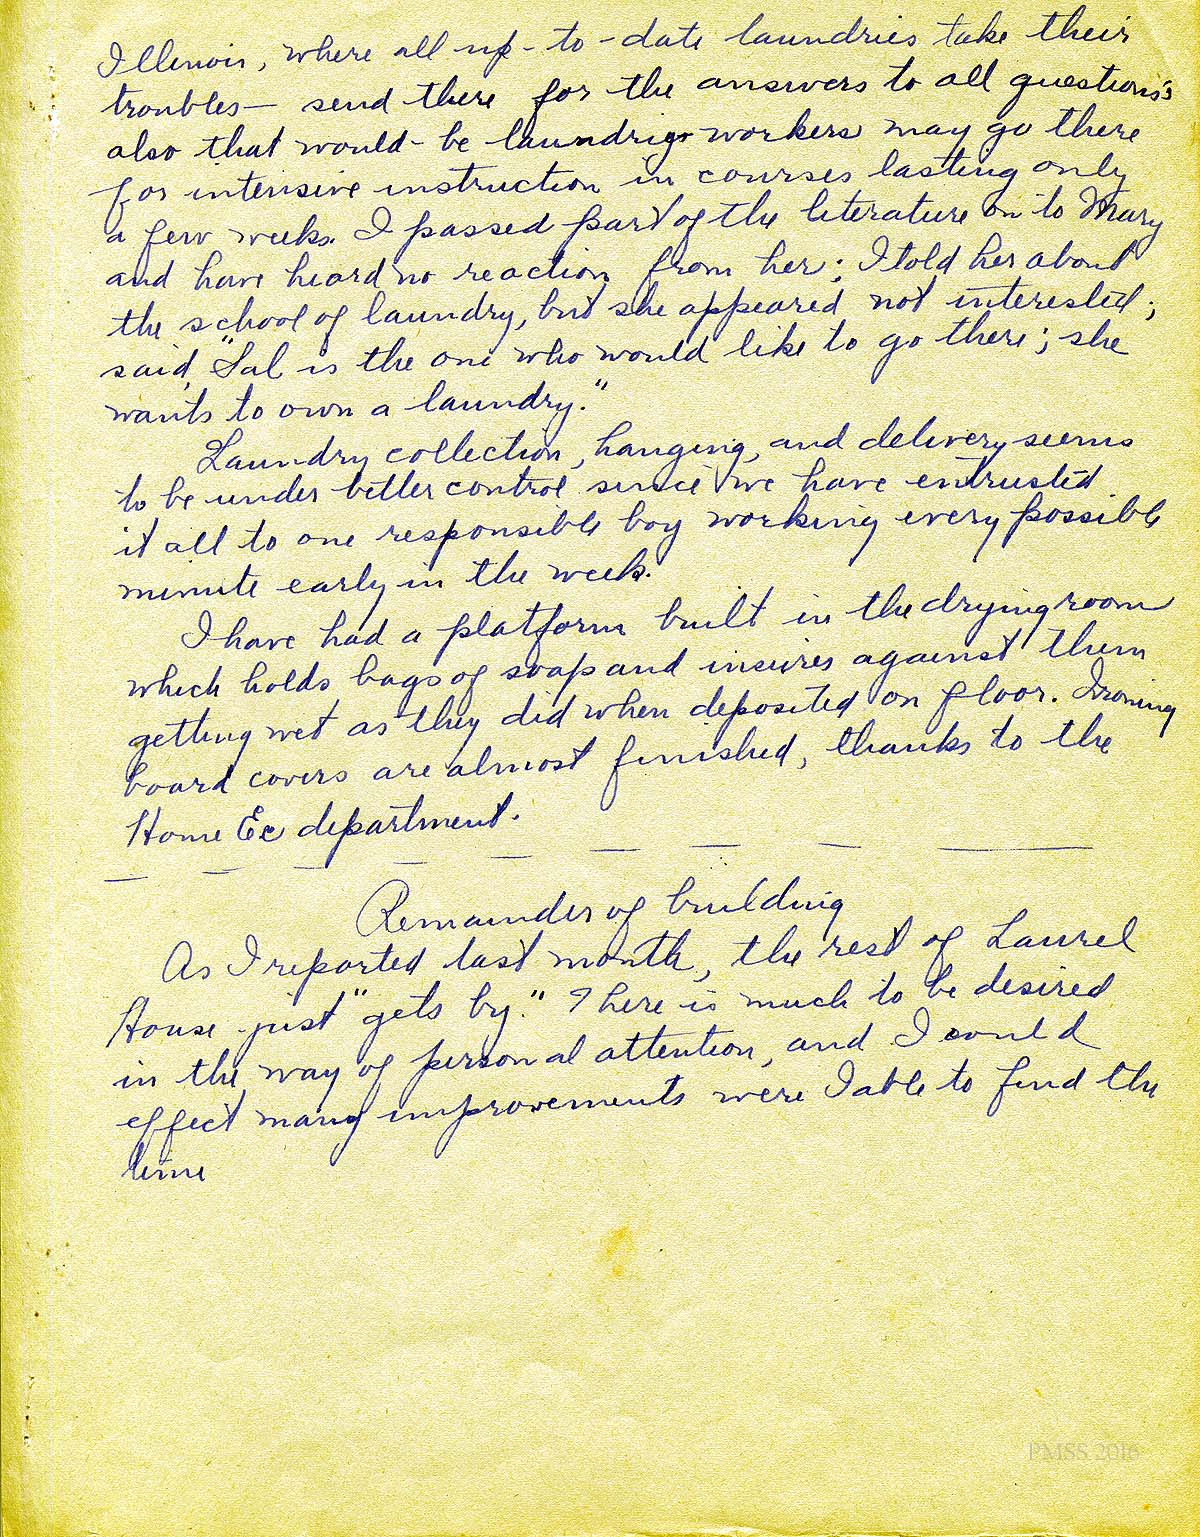 Illinois, where all up-to-date laundries take their
troubles— send there for the answers to all questions;
also that would-be laundry workers may go there
for intensive instruction in courses lasting only
a few weeks. I passed part of the literature on to Mary
and have heard no reaction from her; I told her about
the school of laundry, but she appeared not interested;
said, "Sal is the one who would like to go there; she
wants to own a laundry."
Laundry collection, hanging, and delivery seems
to be under better control since we have entrusted
it all to one responsible boy working every possible
minute early in the week.
I have had a platform built in the drying room
which holds bags of soap and insures against them
getting wet as they did when deposited on floor. Ironing
board covers are almost finished, thanks to the
Home Ec department.
Remainder of building
As I reported last month, the rest of Laurel
House just "gets by." There is much to be desired
in the way of personal attention, and I could
effect many improvements were I able to find the
time
PMSS 2016